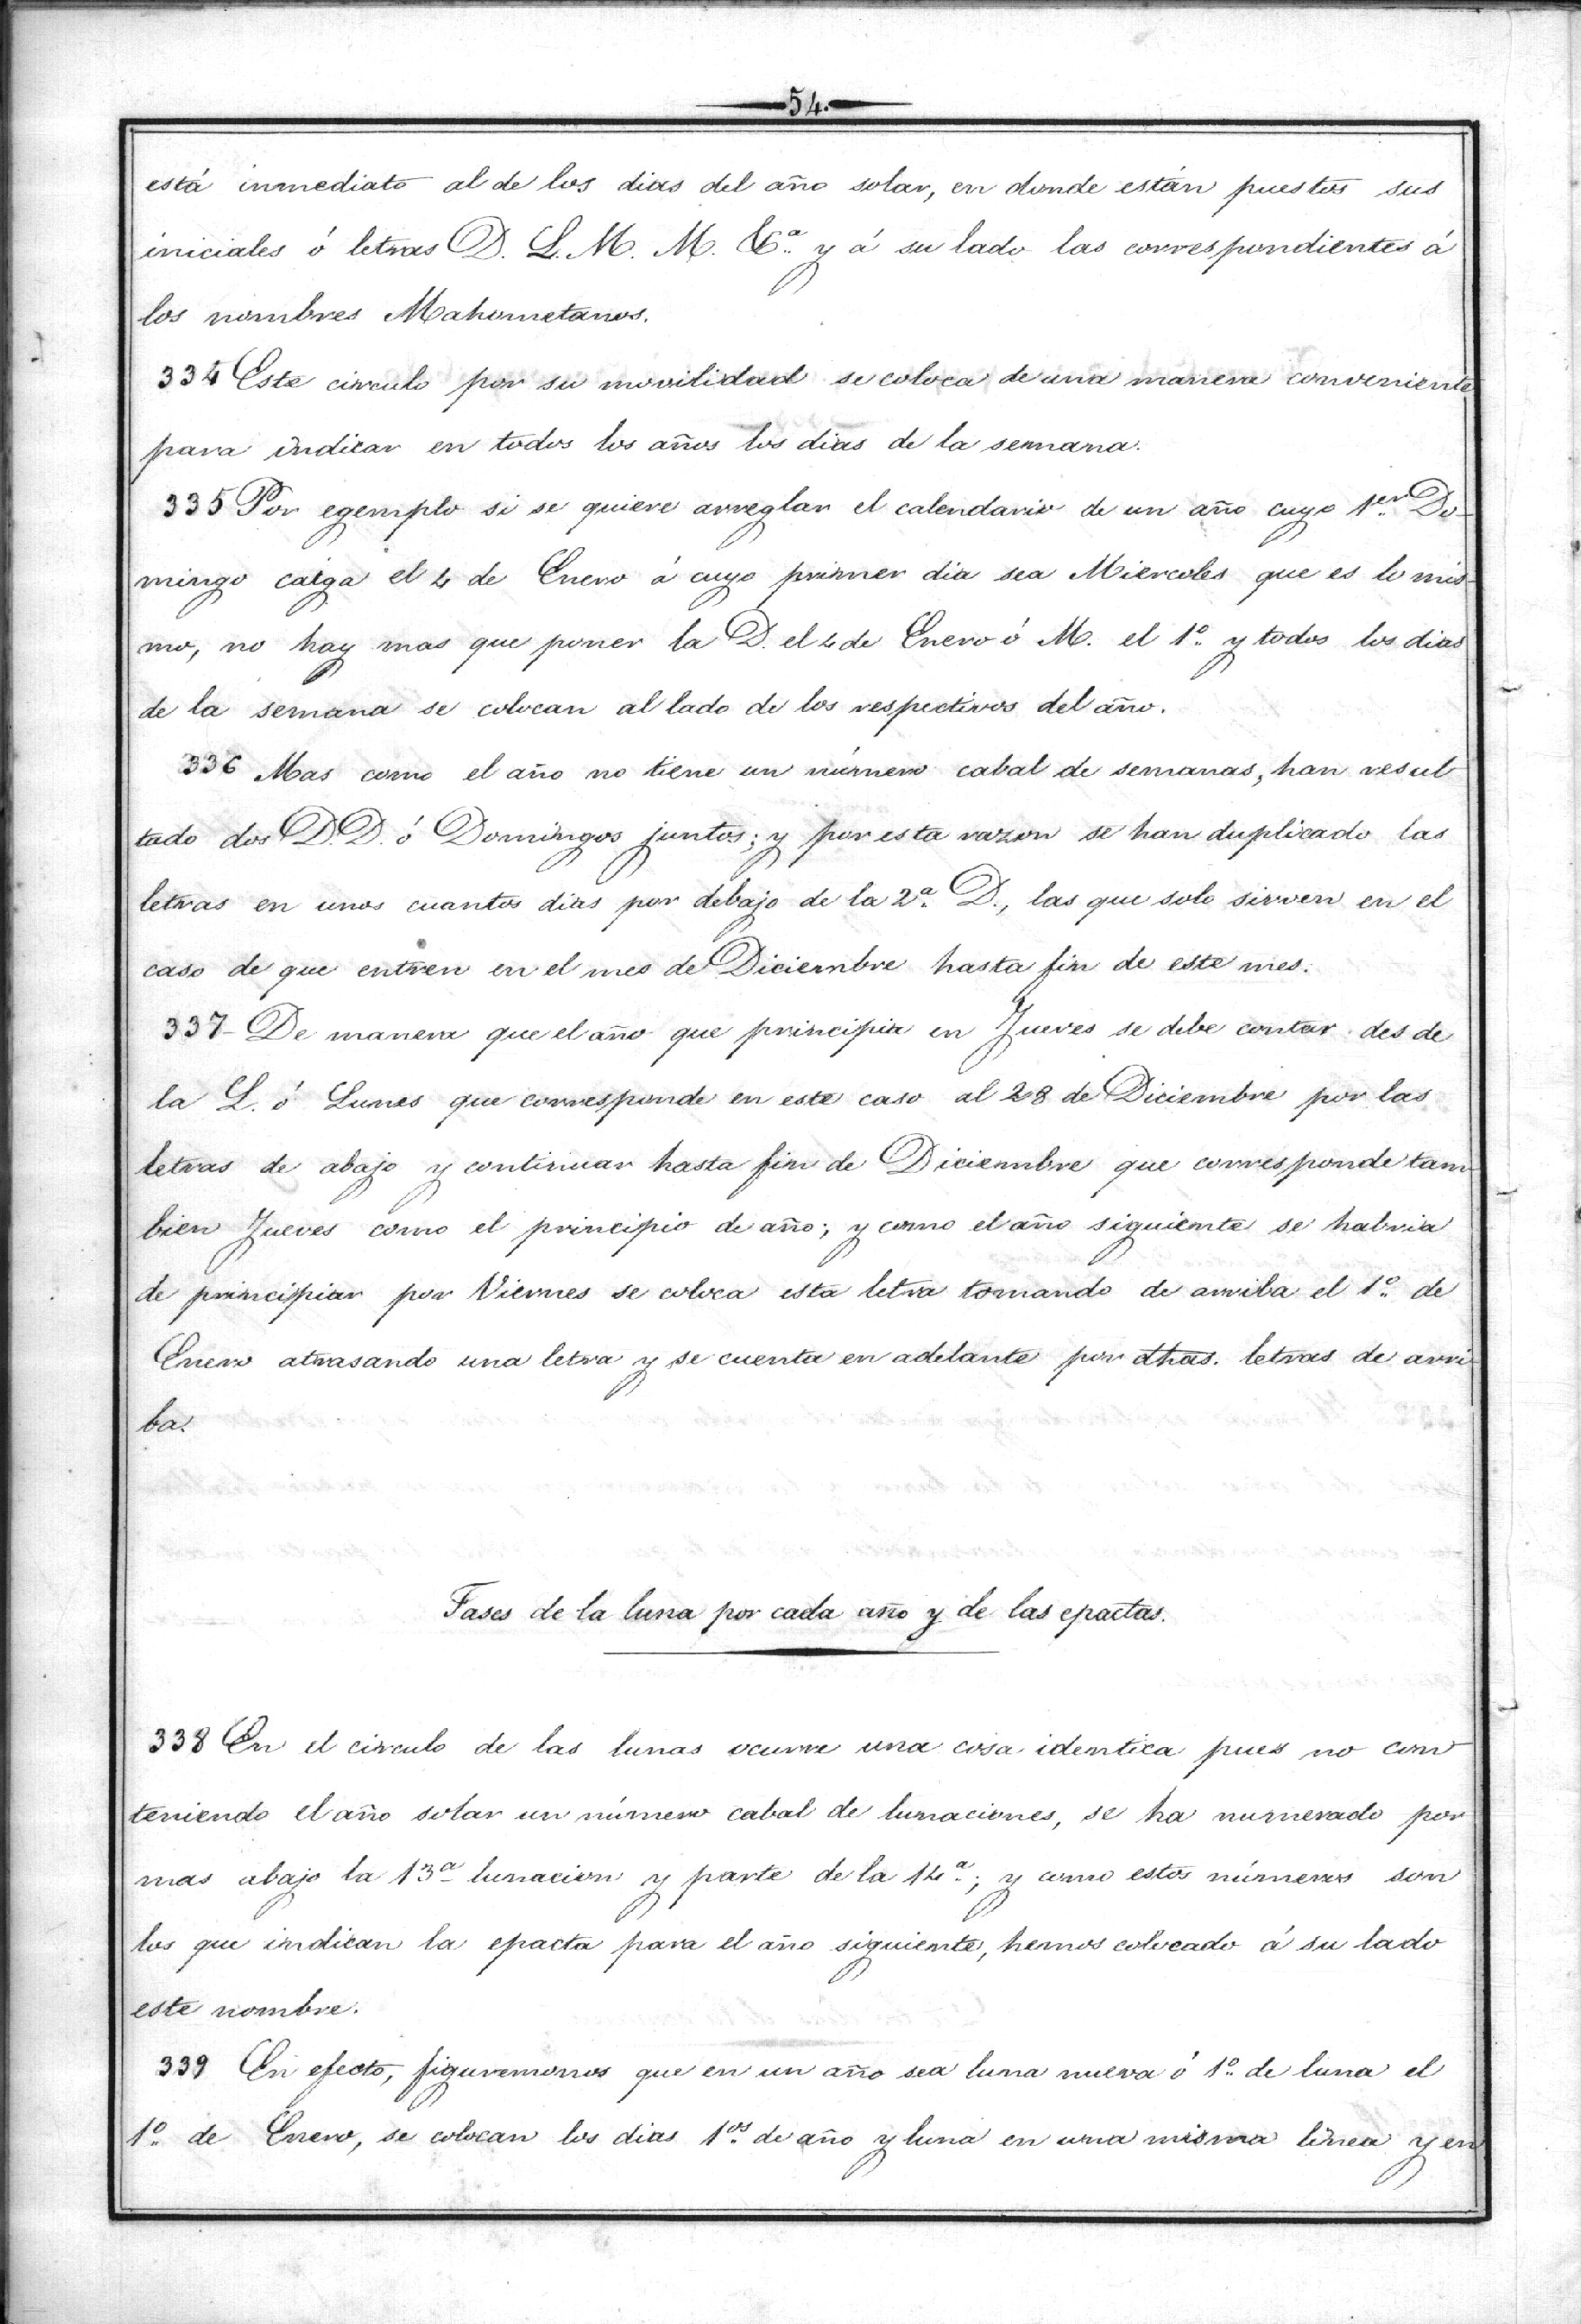 54.
está inmediato al de los dias del año solar, en donde están puestos sus
iniciales ó letras D. L. M. M. &ª. y á su lado las correspondientes á
los nombres Mahometanos.
334 Este circulo por su movilidad se coloca de una manera conveniente
para indicar en todos los años los dias de la semana.
335 Por egemplo si se quiere arreglar el calendario de un año cuyo 1er. Do-
mingo caiga el 4 de Enero á cuyo primer dia sea Miercoles que es lo mis-
mo, no hay mas que poner la D. el 4 de Enero ó M. el 1º. y todos los dias
de la semana se colocan al lado de los respectivos del año.
336 Mas como el año no tiene un número cabal de semanas, han resul-
tado dos D.D. ó Domingos juntos; y por esta razon se han duplicado las
letras en unos cuantos dias por debajo de la 2ª. D., las que solo sirven en el
caso de que entren en el mes de Diciembre hasta fin de este mes.
337 - De manera que el año que principia en Jueves se debe contar desde
la L. ó Lunes que corresponde en este caso al 28 de Diciembre por las
letras de abajo y continuar hasta fin de Diciembre que corresponde tam-
bien Jueves como el principio de año; y como el año siguiente se habria
de principiar por Viernes se coloca esta letra tomando de arriba el 1º. de
Enero atrasando una letra y se cuenta en adelante por dhas. letras de arri-
ba.
Fases de la luna por cada año y de las epactas.
338 En el circulo de las lunas ocurre una cosa identica pues no con-
teniendo el año solar un número cabal de lunaciones, se ha numerado por
mas abajo la 13ª lunacion y parte de la 14ª.; y como estos números son
los que indican la epacta para el año siguiente, hemos colocado á su lado
este nombre.
339 En efecto, figuremonos que en un año sea luna nueva ó 1º. de luna el
1º. de Enero, se colocan los dias 1os. de año y luna en una misma linea y en